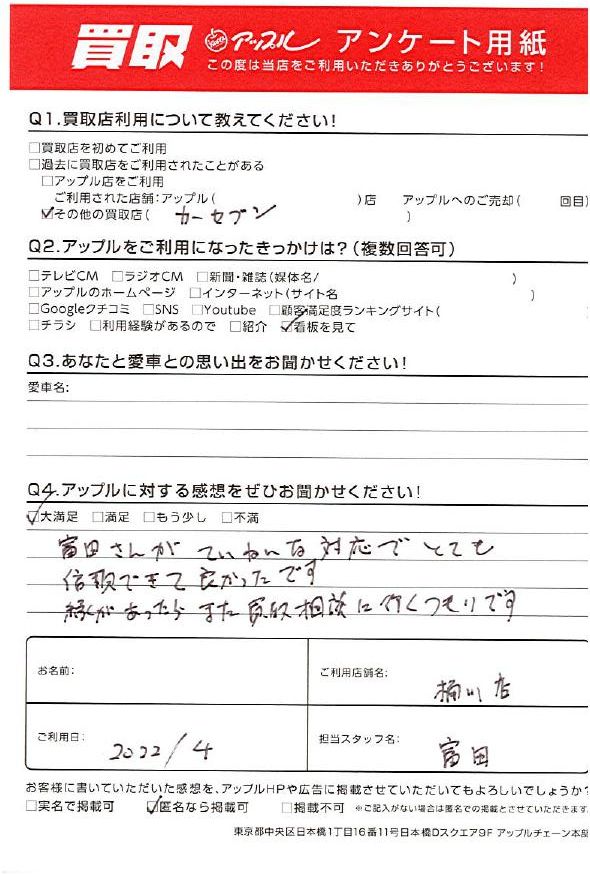 買取 アップル アンケート用紙
この度は当店をご利用いただきありがとうございます!
Q1.買取店利用について教えてください!
□買取店を初めてご利用
□過去に買取店をご利用されたことがある
□アップル店をご利用
ご利用された店舗:アップル( )店 アップルへのご売却( 回目)
☑その他の買取店( カーセブン )
Q2.アップルをご利用になったきっかけは?(複数回答可)
□テレビCM □ラジオCM □新聞・雑誌(媒体名/ )
□アップルのホームページ □インターネット(サイト名 )
□Googleクチコミ □SNS □Youtube □顧客満足度ランキングサイト( )
□チラシ □利用経験があるので □紹介 ☑看板を見て
Q3.あなたと愛車との思い出をお聞かせください!
愛車名:
Q4.アップルに対する感想をぜひお聞かせください!
☑大満足 □満足 □もう少し □不満
富田さんがていねいな対応でとても
信頼できて良かったです
縁があったらまた買取相談に行くつもりです
お名前: ご利用店舗名: 桶川店
ご利用日: 2022/4 担当スタッフ名: 富田
お客様に書いていただいた感想を、アップルHPや広告に掲載させていただいてもよろしいでしょうか?
□実名で掲載可 ☑匿名なら掲載可 □掲載不可 ※ご記入がない場合は匿名での掲載とさせていただきます
東京都中央区日本橋1丁目16番11号日本橋Dスクエア9F アップルチェーン本部